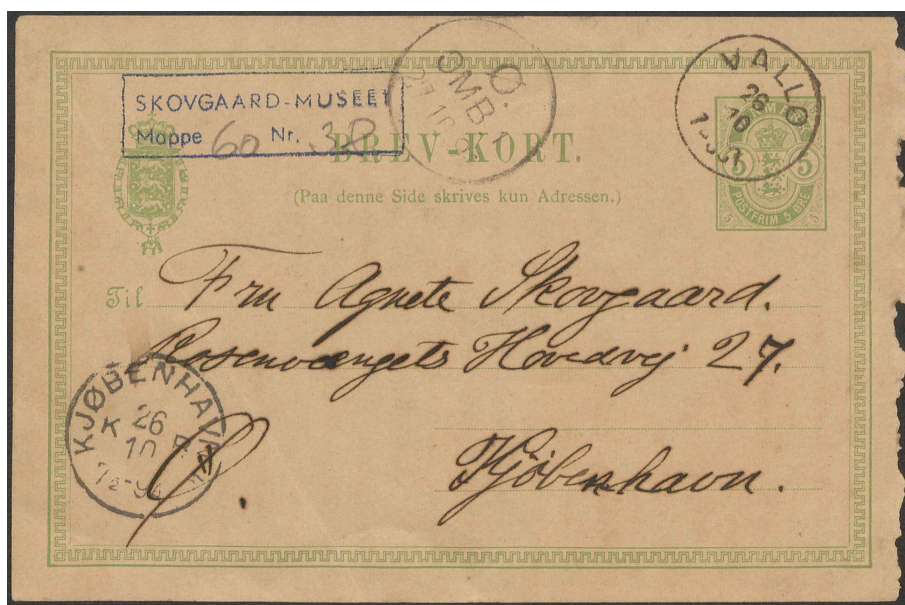 SKOVGAARD-MUSEET
Mappe 60 Nr. 38
Ø.
OMB. 1
27 10
VALLØ
26
10
BREV-KORT.
(Paa denne Side skrives kun Adressen.)
5 5
POSTFRIM. 5 ØRE
Til Fru Agnete Skovgaard.
Rosenvængets Hovedvej 27.
KJØBENHAVN
K
26
10
Ø.
Kjøbenhavn.